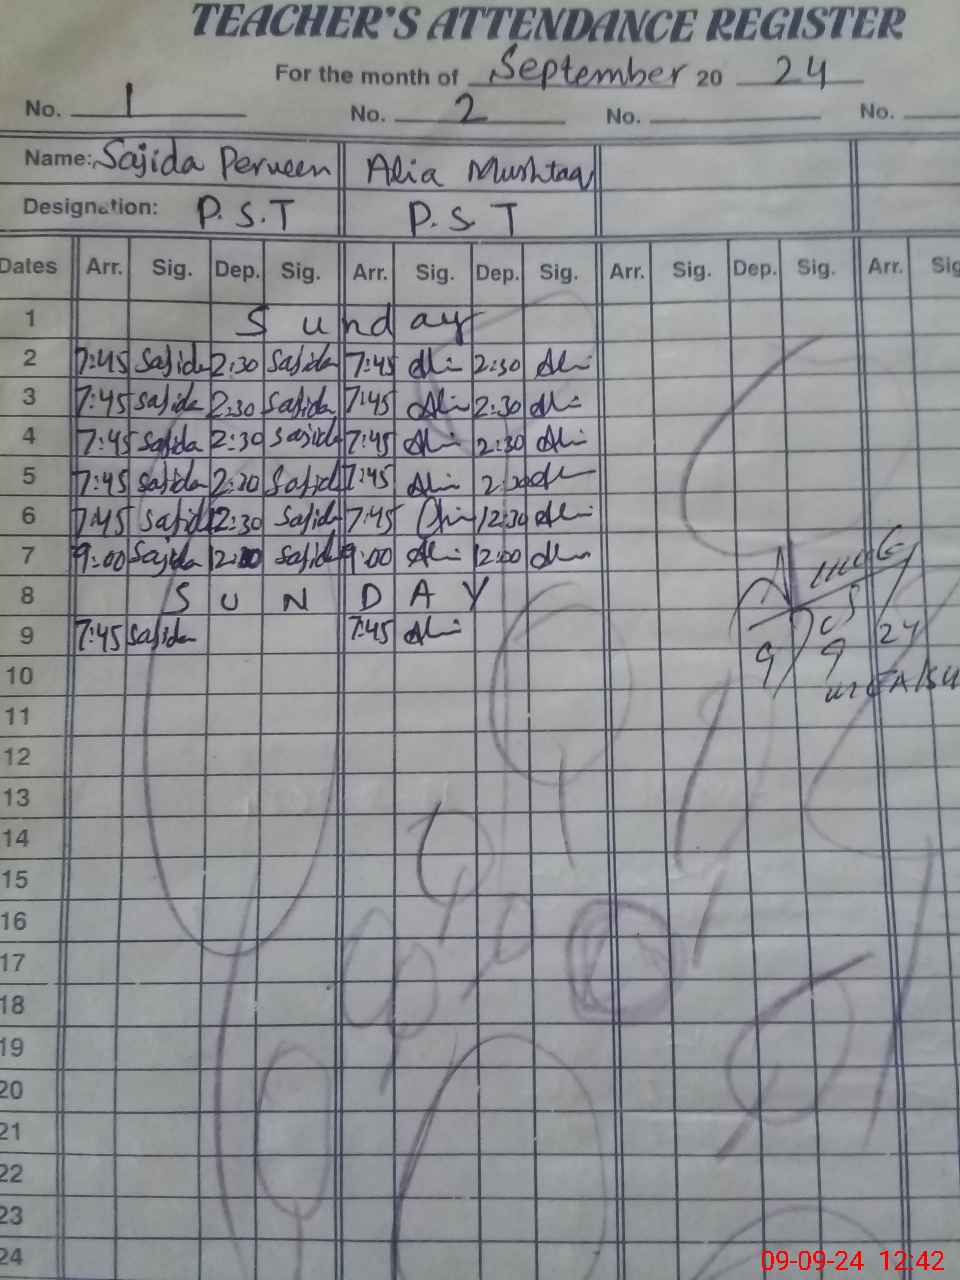 TEACHER'S ATTENDANCE REGISTER
For the month of September 20 24
No. 1 No. 2 No. No.
Name: Sajida Perveen Alia Mushtaq
Designation: P.S.T P.S.T
Dates Arr. Sig. Dep. Sig. Arr. Sig. Dep. Sig. Arr. Sig. Dep. Sig. Arr. Sig
1 Sunday
2 7:45 Sajida 2:30 Sajida 7:45 Ali 2:30 Ali
3 7:45 Sajida 2:30 Sajida 7:45 Ali 2:30 Ali
4 7:45 Sajida 2:30 Sajida 7:45 Ali 2:30 Ali
5 7:45 Sajida Sajida 7:45 Ali Ali
6 7:45 Sajida 12:30 Sajida 7:45 12:30 Ali
7 9:00 Sajida Sajida 9:00 Ali 12:00 Ali
8 SUNDAY
9 7:45 Sajida 7:45 Ali
9 9 24
10
11
12
13
14
15
16
17
18
19
20
21
22
23
24
09-09-24 12:42